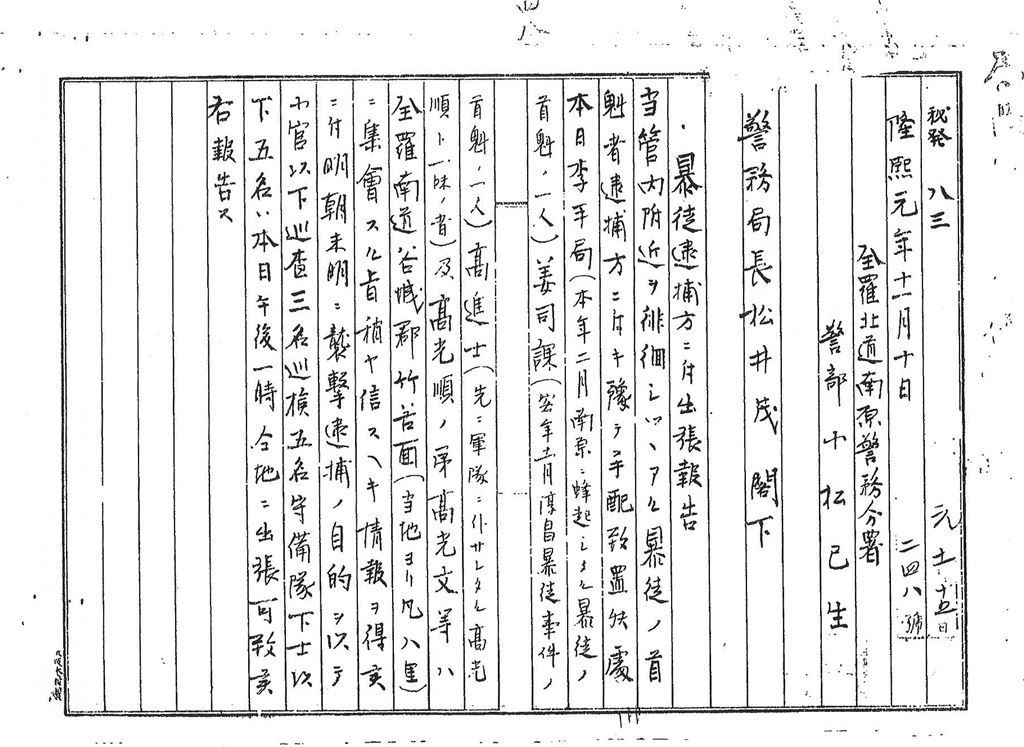 秘発 八三
隆熙元年十一月十日
元 十一 十五日
二四八號
全羅北道南原警務分署
警部 小松己生
警務局長松井茂閣下
暴徒逮捕方ニ付出張報告
当管内附近ヲ徘徊シツヽアル暴徒ノ首
魁者逮捕方ニ付キ豫テ手配致置候處
本日李平局(本年二月南原ニ蜂起シタル暴徒ノ
首魁ノ一人)姜司課(客年十一月淳昌暴徒事件ノ
首魁ノ一人)高進士(先ニ軍隊ニ仆サレタル高光
順ト一味ノ者)及高光順ノ弟高光文等ハ
全羅南道谷城郡竹谷面(当地ヨリ凡八里)
ニ集會スル旨稍ヤ信スヘキ情報ヲ得候
ニ付明朝未明ニ襲撃逮捕ノ目的ヲ以テ
小官以下巡査三名巡検五名守備隊下士以
下五名ハ本日午後一時仝地ニ出張可致候
右報告ス